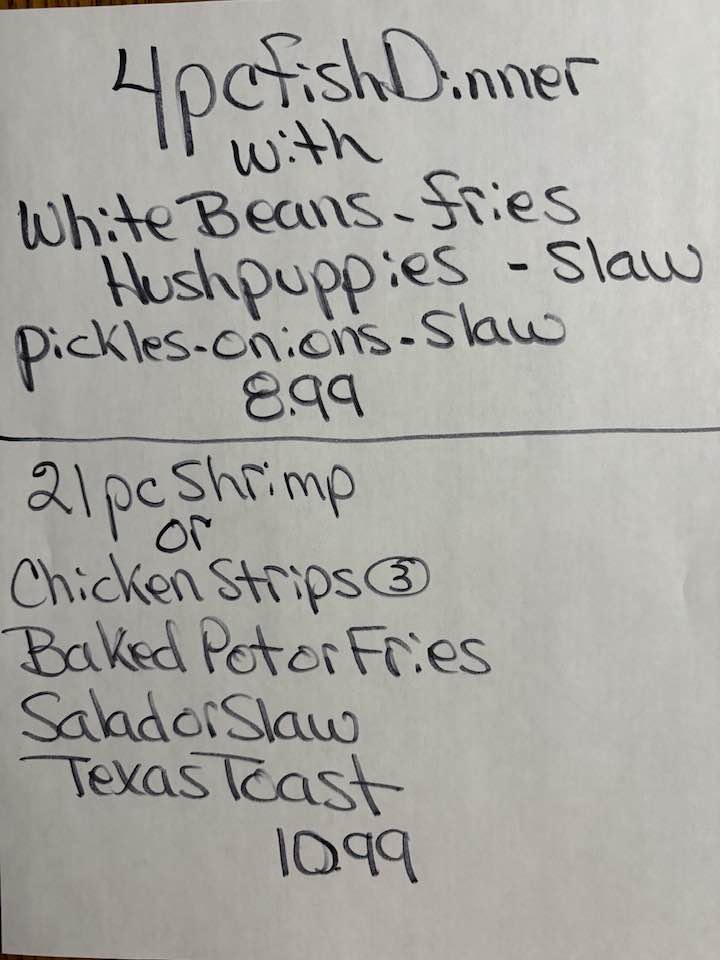 4pc fish Dinner
with
White Beans - fries
Hushpuppies - Slaw
pickles - onions - Slaw
8.99
21 pc Shrimp
or
Chicken Strips ③
Baked Pot or Fries
Salad or Slaw
Texas Toast
10.99